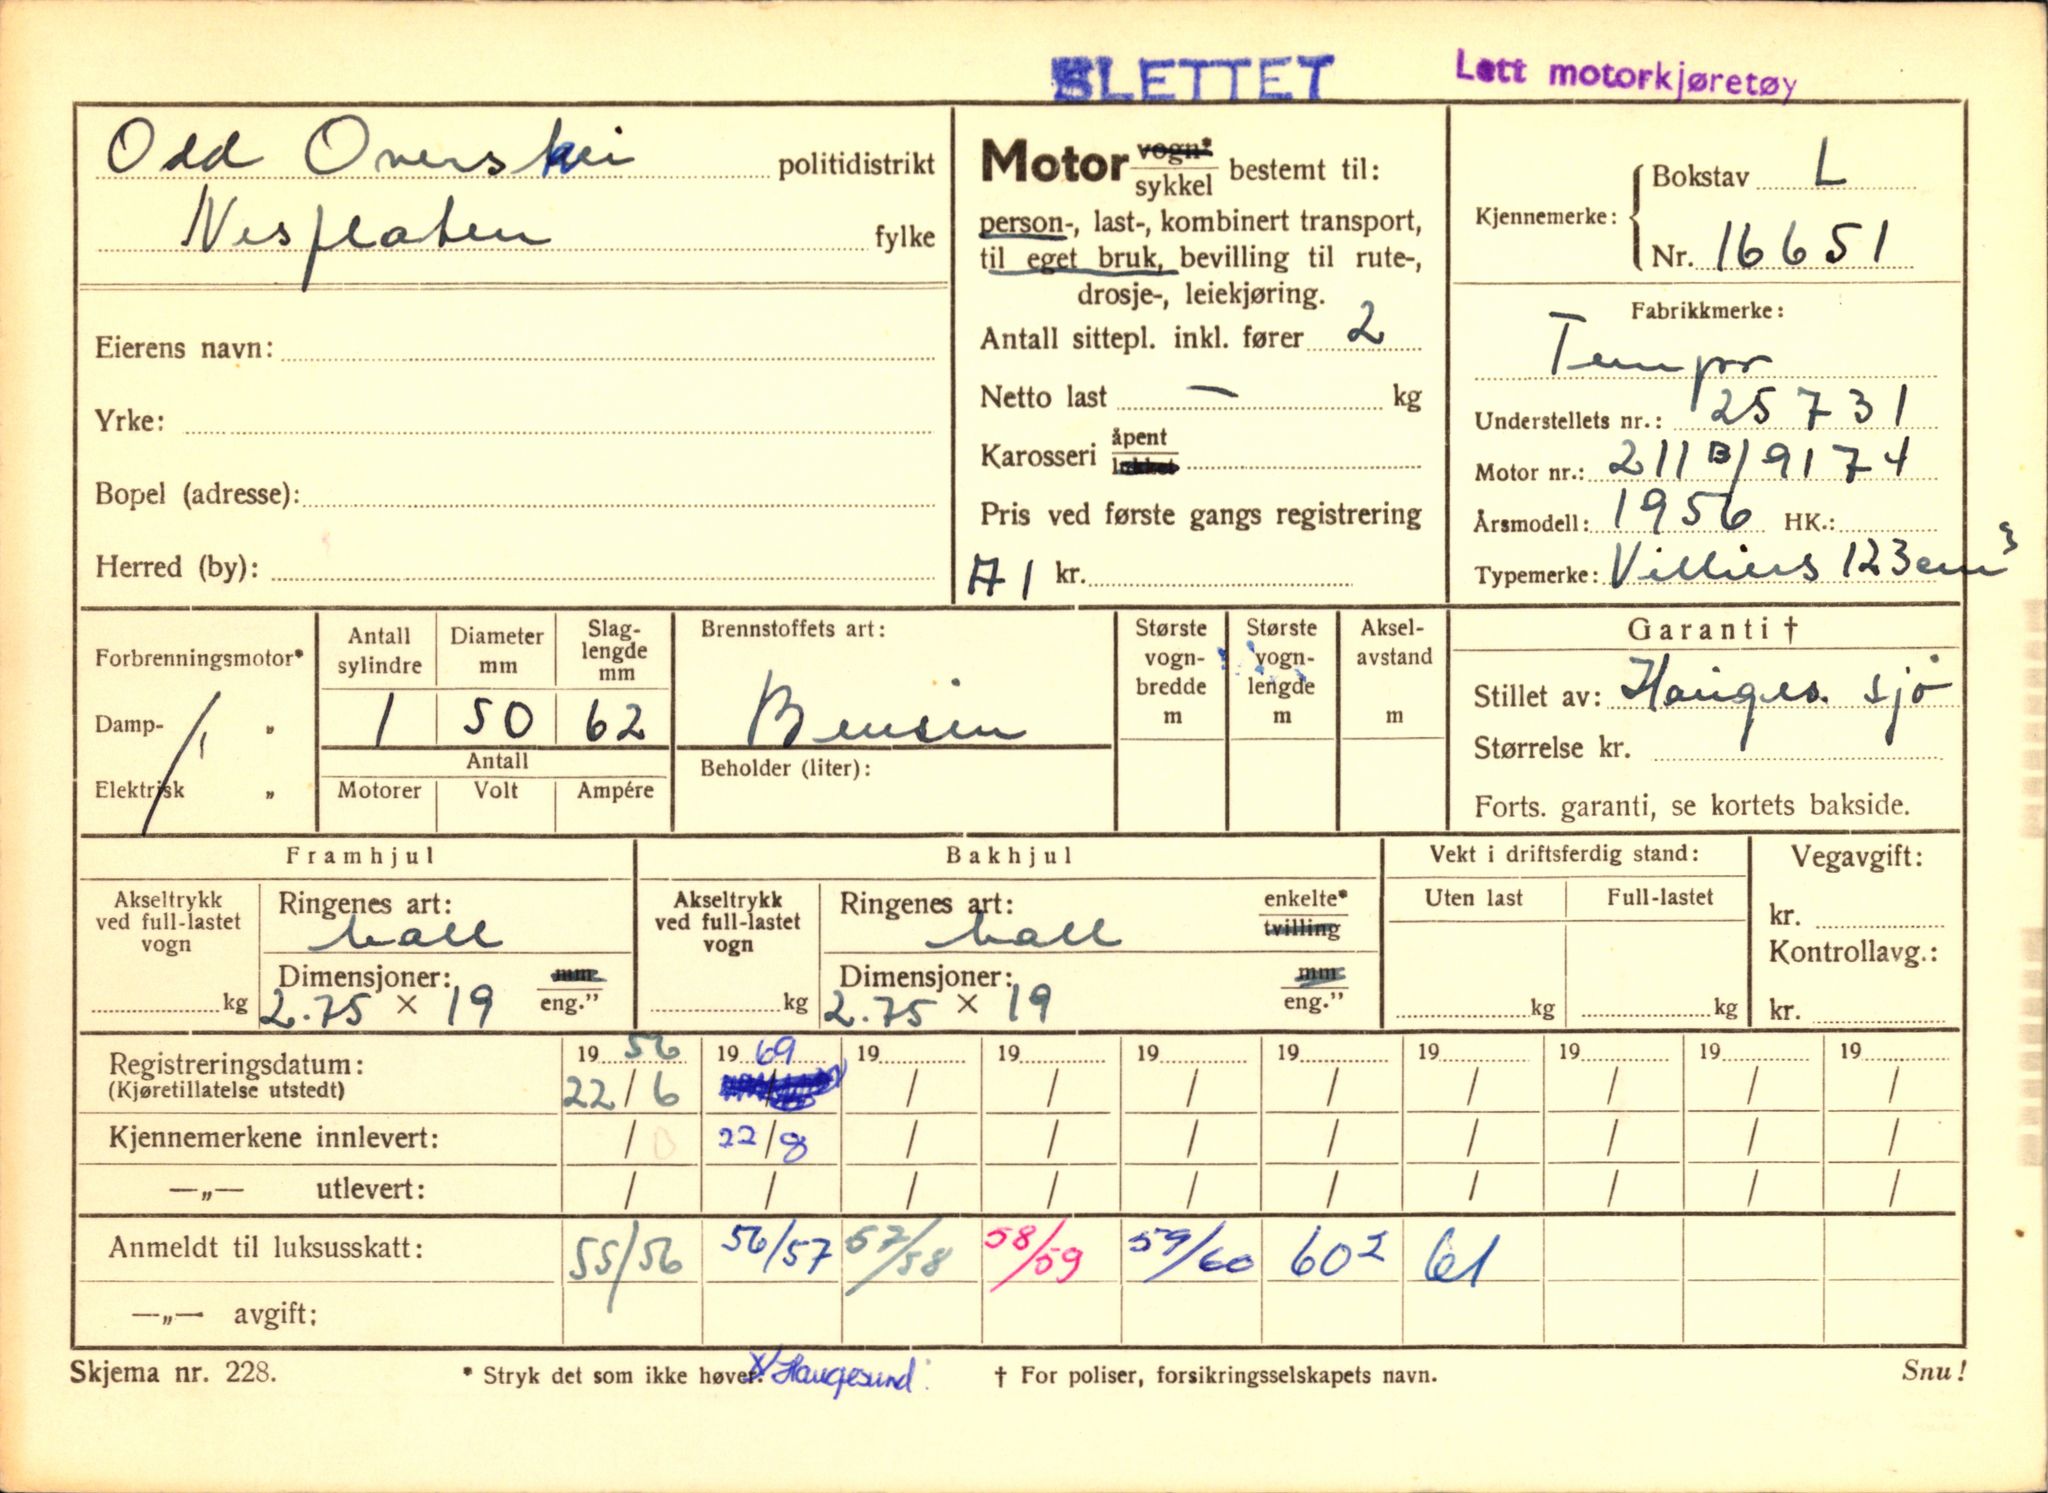 SLETTET
Lett motorkjøretøy
Odd politidistrikt
Nesflaten fylke
Eierens navn:
Yrke:
Bopel (adresse):
Herred (by):
Motor vogn* sykkel bestemt til:
person-, last-, kombinert transport,
til eget bruk, bevilling til rute-,
drosje-, leiekjøring.
Antall sittepl. inkl. fører 2
Netto last — kg
Karosseri åpent lukket
Pris ved første gangs registrering
A1 kr.
Kjennemerke: Bokstav L
Nr. 16651
Fabrikkmerke:
Tempo
Understellets nr.: 25731
Motor nr.: 211B/9174
Årsmodell: 1956 HK.:
Typemerke: Villiers 123 cm³
Forbrenningsmotor*
Damp- „
Elektrisk „
Antall sylindre
Diameter mm
Slag-lengde mm
1 50 62
Antall
Motorer Volt Ampére
Brennstoffets art:
Bensin
Beholder (liter):
Største vogn-bredde m
Største vogn-lengde m
Aksel-avstand m
Garanti †
Stillet av: Hauges. sjø
Størrelse kr.
Forts. garanti, se kortets bakside.
Framhjul
Akseltrykk ved full-lastet vogn
kg
Ringenes art:
ball
Dimensjoner: mm
2.75 × 19 eng.”
Bakhjul
Akseltrykk ved full-lastet vogn
kg
Ringenes art: enkelte*
ball tvilling
Dimensjoner: mm
2.75 × 19 eng.”
Vekt i driftsferdig stand:
Uten last Full-lastet
kg kg
Vegavgift:
kr.
Kontrollavg.:
kr.
Registreringsdatum: 19 56 19 69 19 19 19 19 19 19 19 19
(Kjøretillatelse utstedt) 22/6 / / / / / / / / /
Kjennemerkene innlevert: / 22/8 / / / / / / / /
—„— utlevert: / / / / / / / / / /
Anmeldt til luksusskatt: 55/56 56/57 57/58 58/59 59/60 60² 61
—„— avgift:
Skjema nr. 228. * Stryk det som ikke høver. x/ Haugesund. † For poliser, forsikringsselskapets navn. Snu!